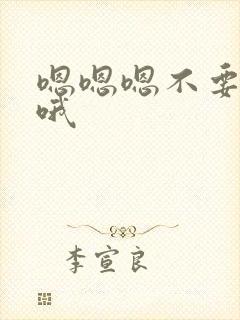 嗯嗯嗯不要
哦
李宣良